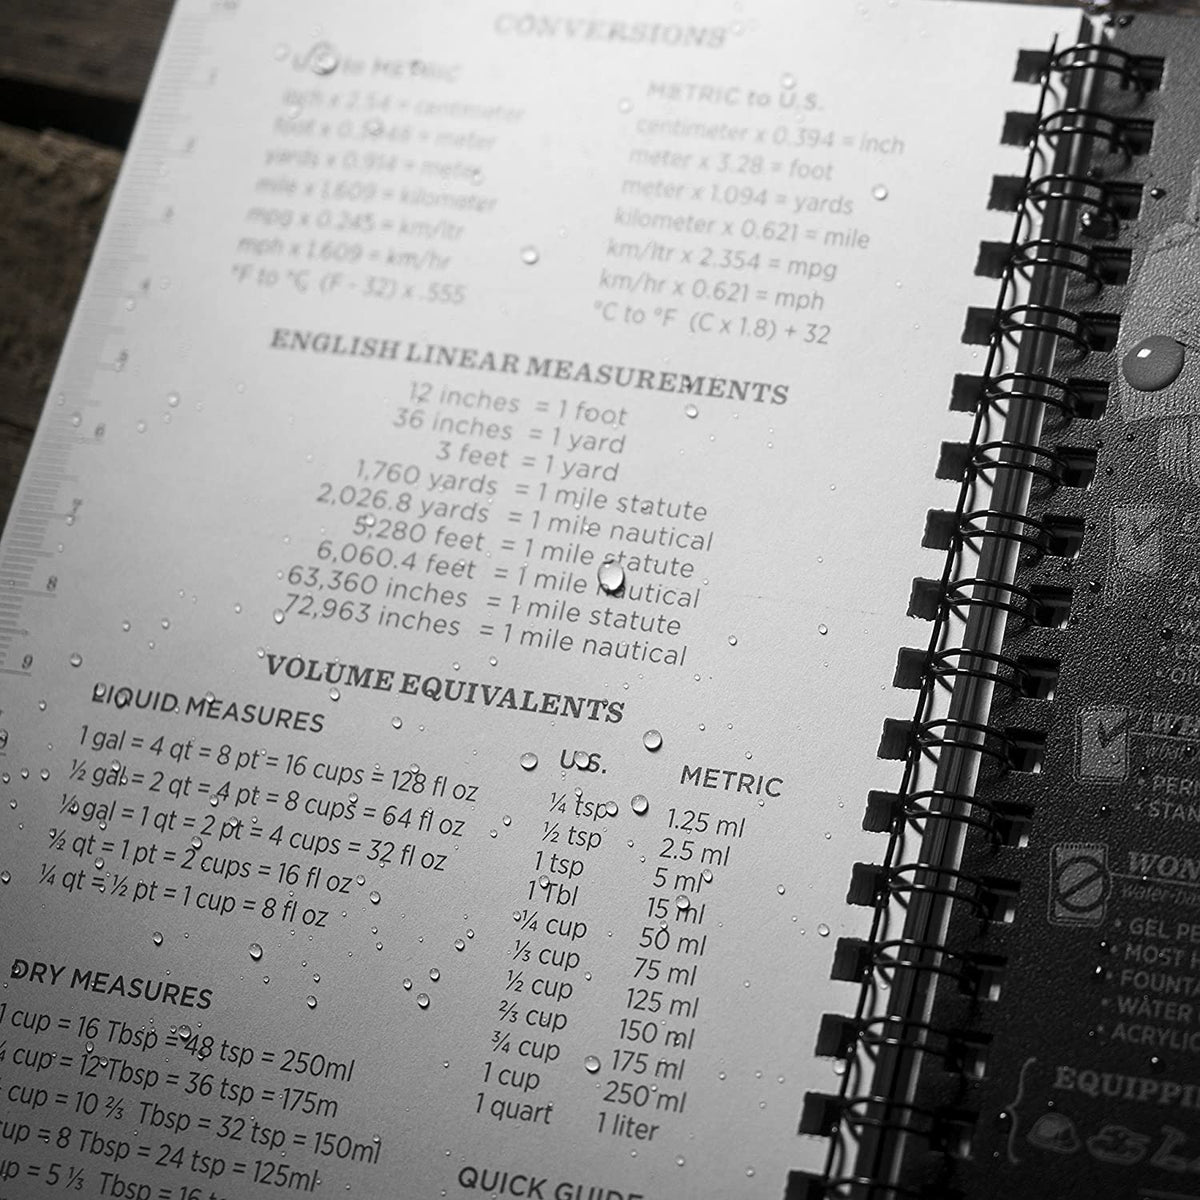 CONVERSIONS
U.S. to METRIC
inch x 2.54 = centimeter
foot x 0.3048 = meter
yards x 0.914 = meter
mile x 1.609 = kilometer
mpg x 0.245 = km/ltr
mph x 1.609 = km/hr
°F to °C (F - 32) x .555
METRIC to U.S.
centimeter x 0.394 = inch
meter x 3.28 = foot
meter x 1.094 = yards
kilometer x 0.621 = mile
km/ltr x 2.354 = mpg
km/hr x 0.621 = mph
°C to °F (C x 1.8) + 32
ENGLISH LINEAR MEASUREMENTS
12 inches = 1 foot
36 inches = 1 yard
3 feet = 1 yard
1,760 yards = 1 mile statute
2,026.8 yards = 1 mile nautical
5,280 feet = 1 mile statute
6,060.4 feet = 1 mile nautical
63,360 inches = 1 mile statute
72,963 inches = 1 mile nautical
VOLUME EQUIVALENTS
LIQUID MEASURES
1 gal = 4 qt = 8 pt = 16 cups = 128 fl oz
½ gal = 2 qt = 4 pt = 8 cups = 64 fl oz
¼ gal = 1 qt = 2 pt = 4 cups = 32 fl oz
½ qt = 1 pt = 2 cups = 16 fl oz
¼ qt = ½ pt = 1 cup = 8 fl oz
U.S. METRIC
¼ tsp 1.25 ml
½ tsp 2.5 ml
1 tsp 5 ml
1 Tbl 15 ml
¼ cup 50 ml
⅓ cup 75 ml
½ cup 125 ml
⅔ cup 150 ml
¾ cup 175 ml
1 cup 250 ml
1 quart 1 liter
DRY MEASURES
1 cup = 16 Tbsp = 48 tsp = 250ml
cup = 12 Tbsp = 36 tsp = 175m
cup = 10 ⅔ Tbsp = 32 tsp = 150ml
cup = 8 Tbsp = 24 tsp = 125ml
= 5 ⅓ Tbsp = 16
QUICK GUIDE
3
4
5
6
7
8
9
• GEL
• MOST
• WATER